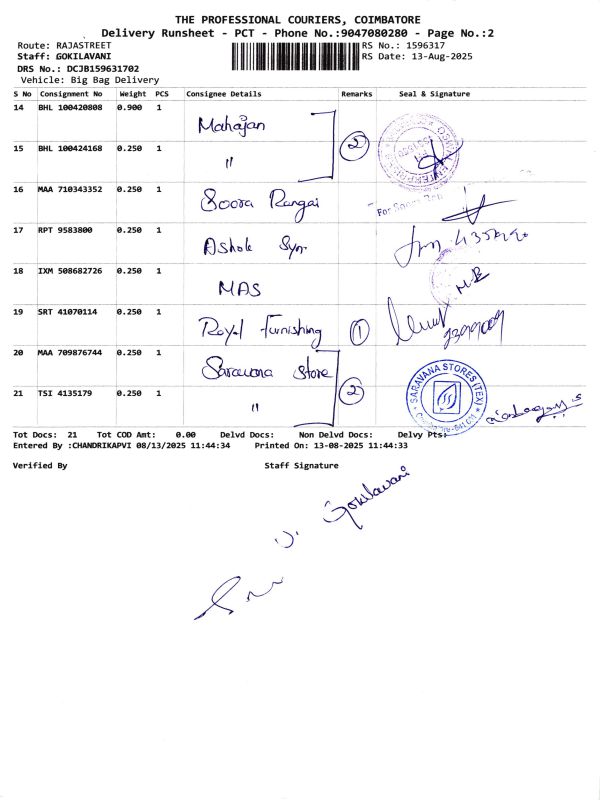 THE PROFESSIONAL COURIERS, COIMBATORE
Delivery Runsheet - PCT - Phone No.:9047080280 - Page No.:2
Route: RAJASTREET
RS No.: 1596317
Staff: GOKILAVANI
RS Date: 13-Aug-2025
DRS No.: DCJB159631702
Vehicle: Big Bag Delivery
S No Consignment No Weight PCS Consignee Details Remarks Seal & Signature
14 BHL 100420808 0.900 1 Mahajan
2
15 BHL 100424168 0.250 1 "
16 MAA 710343352 0.250 1 Soora Rangai
For Soora
17 RPT 9583800 0.250 1 Ashok Syn.
18 IXM 508682726 0.250 1 MAS
19 SRT 41070114 0.250 1 Royal Furnishing 1
20 MAA 709876744 0.250 1 Saravana Store
2
SARAVANA STORES (TEX)
21 TSI 4135179 0.250 1 "
Tot Docs: 21 Tot COD Amt: 0.00 Delvd Docs: Non Delvd Docs: Delvy Pts:
Entered By :CHANDRIKAPVI 08/13/2025 11:44:34 Printed On: 13-08-2025 11:44:33
Verified By Staff Signature
Gokilavani